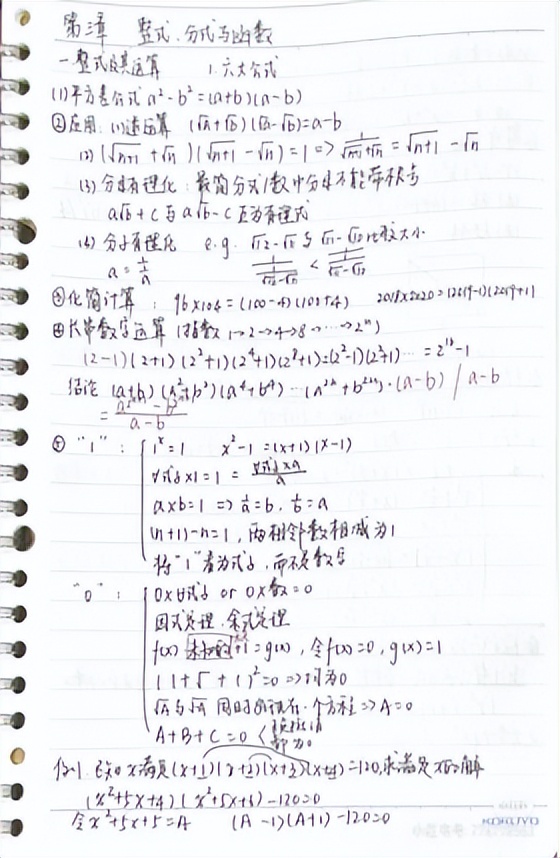 第三章 整式、分式与函数
一.整式及其运算 1.六大公式
(1)平方差公式 a²-b²=(a+b)(a-b)
②应用: (1)逆运算 (√a+√b)(√a-√b)=a-b
(2) (√n+1 + √n)(√n+1 - √n)=1 => 1/(√n+1+√n) = √n+1 - √n
(3)分母有理化: 最简分式/数中分母不能带根号
a√b+c与a√b-c互为有理式
(4)分子有理化 e.g. 比较大小
a=
③化简计算: 96×104=(100-4)(100+4) 2018×2020=(2019-1)(2019+1)
④长串数字运算 (指数1→2→4→8→……→2ⁿ)
(2-1)(2+1)(2²+1)(2⁴+1)(2⁸+1)=(2²-1)(2²+1)…… =2¹⁶-1
结论 (a+b)(a²+b²)(a⁴+b⁴)…(a²ⁿ+b²ⁿ)·(a-b) / a-b
a-b
⑤ "1": 1ˣ=1 x²-1=(x+1)(x-1)
×1=1
a×b=1 => 1/a=b, 1/b=a
(n+1)-n=1, 两相邻数相减为1
将"1"看为式子, 而不是数字
"0": 0×式子 or 0×数=0
因式定理、余式定理
f(x) +1=g(x), 令f(x)=0, g(x)=1
| |+√ +( )²=0 => 均为0
同时出现在一个方程 => A=0
A+B+C=0
都为0
例1.已知x满足(x+1)(x+2)(x+3)(x+4)=120,求满足x的解
(x²+5x+4)(x²+5x+6)-120=0
令x²+5x+5=A (A-1)(A+1)-120=0
KOKUYO